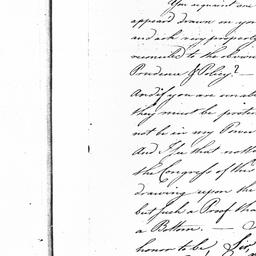 You acquaint me
appears drawn on you
and ask very properly
reconciled to the
Prudence & Policy? —
And if you are unable
they must be protes
not be in my Power
And I fee that noth
the Congress of the
drawing upon the
but such a Proof tha
a Bottom. —
honor to be, Sir,